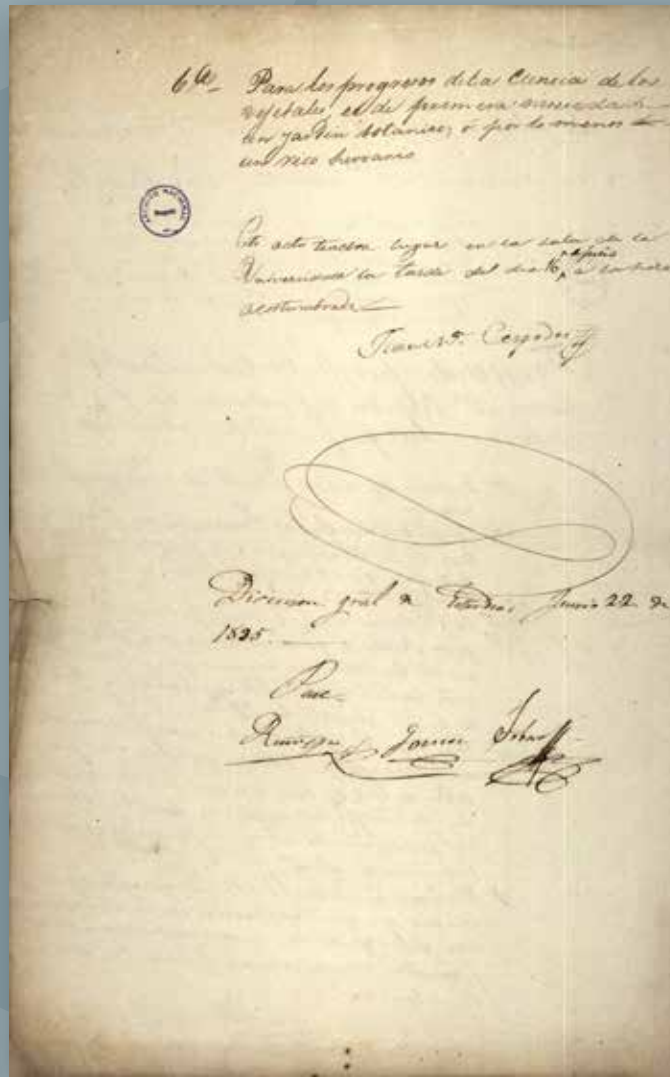 6a_ Para los progresos de la Ciencia de los
vejetales es de primera necesidad
un jardin botanico, ó por lo menos
un rico hervario
ARCHIVO NACIONAL
Este acto tendra lugar en la sala de la
Universidad la tarde del dia 16, a la hora
acostumbrada
Juan Ma. Cespedes
Direccion gral de Estudios Junio 22 de
1835.
Pase
Gomez